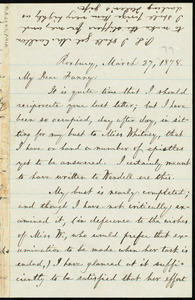 Roxbury, March 27, 1878.
My Dear Fanny:
It is quite time that I should
reciprocate your last letter; but I have
been so occupied, day after day, in sit-
ting for my bust to Miss Whitney, that
I have on hand a number of epistles
yet to be answered. I certainly meant
to have written to Wendell ere this.
My bust is nearly completed;
and though I have not critically ex-
amined it, (in deference to the wishes
of Miss W., who would prefer that ex-
amination to be made when her task is
ended,) I have glanced at it suffi-
ciently to be satisfied that her effort
P.S. I shall get Mr.
to make the
I shall